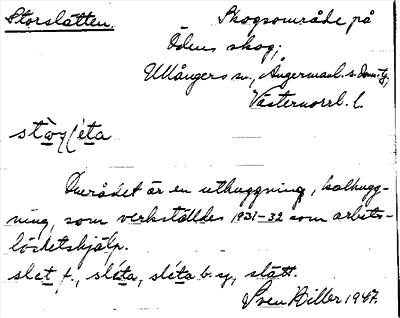 Storslåtten. Skogsområde på
Ödens skog;
Ullångers sn, Ångermanl. s. doms.,
Västernorrl. l.
Området är en uthuggning, kalhugg-
ning, som verkställdes 1931-32 som arbets-
löshetshjälp.
slet f., sléta, sléta b. sg. slått.
Sven Biller 1947.